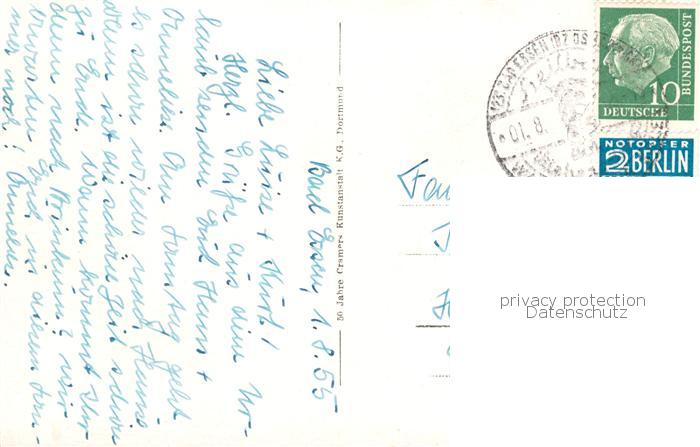 Bad Essen, 1.8.55
Liebe Luise + Kurt!
Herzl. Grüße aus dem Ur-
laub senden Euch Hans +
Annelies. Am Samstag geht
es schon wieder nach Hause
Dann ist die schöne Zeit schon
zu Ende. Wann kommt Ihr
denn nach Brinkum? Wir
erwarten Euch in diesem
noch!
50 Jahre Cramers Kunstanstalt K.G., Dortmund
BAD ESSEN
01.8.
10
DEUTSCHE
BUNDESPOST
NOTOPFER
2 BERLIN
privacy protection
Datenschutz